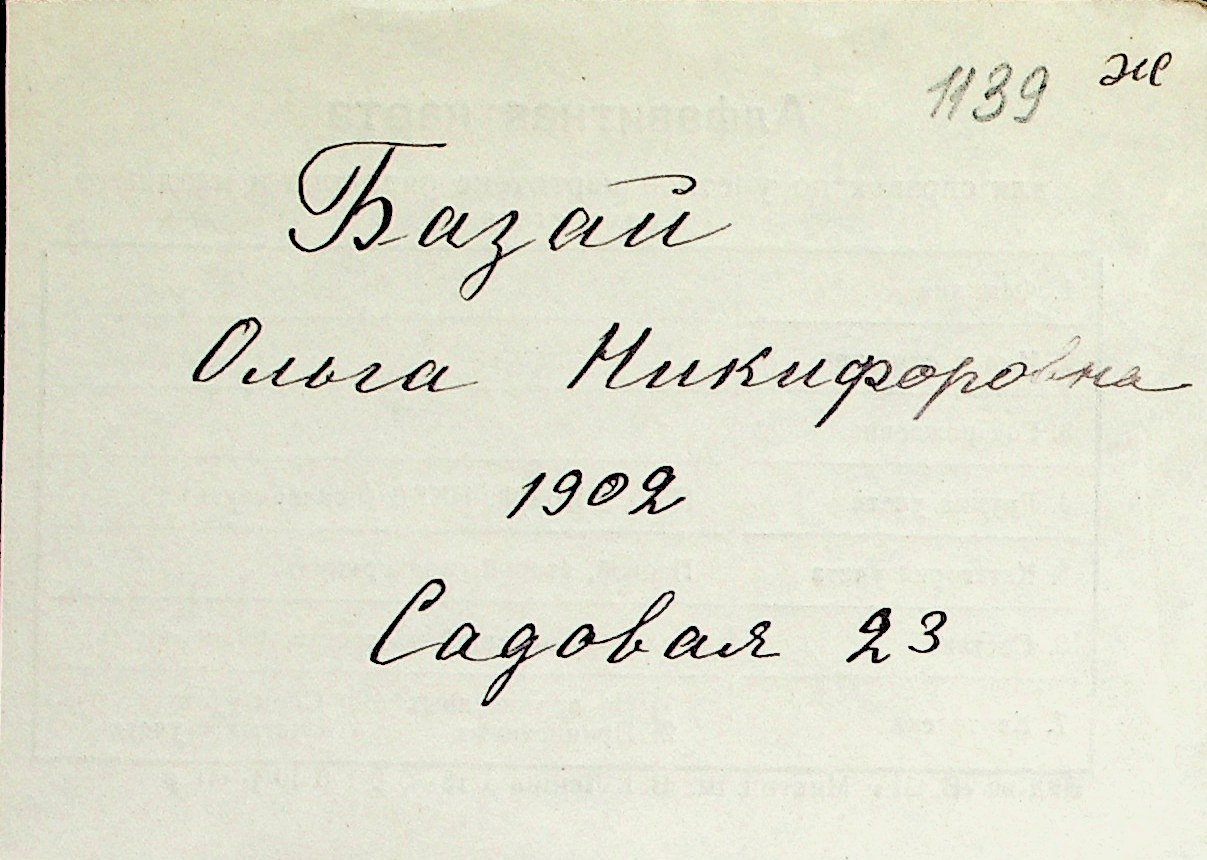 1139 ж
Базай
Ольга Никифоровна
1902
Садовая 23